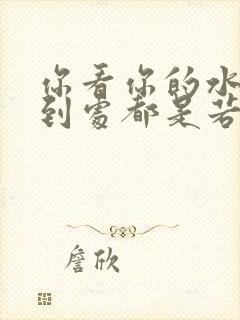 你看你的水
到處都是若
詹欣